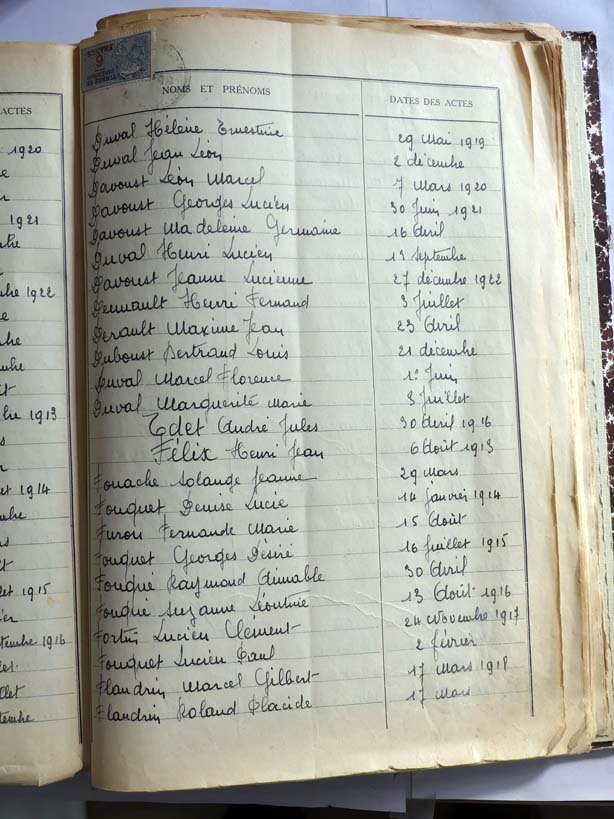 ACTES
1920
1921
1922
1913
1914
1915
1916
9
NOMS ET PRÉNOMS DATES DES ACTES
Duval Hélène Ernestine 29 Mai 1919
Duval Jean Léon 2 décembre
Davoust Léon Marcel 7 Mars 1920
Davoust Georges Lucien 30 Juin 1921
Davoust Madeleine Germaine 16 Avril
Duval Henri Lucien 13 Septembre
Davoust Jeanne Lucienne 27 décembre 1922
Henri Fernand 3 Juillet
Derault Maxime Jean 23 Avril
Duboust Bertrand Louis 21 décembre
Duval Marcel Florence 1er Juin
Duval Marguerite Marie 3 Juillet
Edet André Jules 30 Avril 1916
Félix Henri Jean 6 Août 1913
Fouache Solange Jeanne 29 Mars
Fouquet Denise Lucie 14 janvier 1914
Furon Fernande Marie 15 Août
Fouquet Georges Désiré 16 Juillet 1915
Fouque Raymond Aimable 30 Avril
Fouque Suzanne Léontine 13 Août 1916
Fortin Lucien Clément 24 Novembre 1917
Fouquet Lucien Paul 2 février
Flandrin Marcel Gilbert 17 Mars 1918
Flandrin Roland Placide 17 Mars